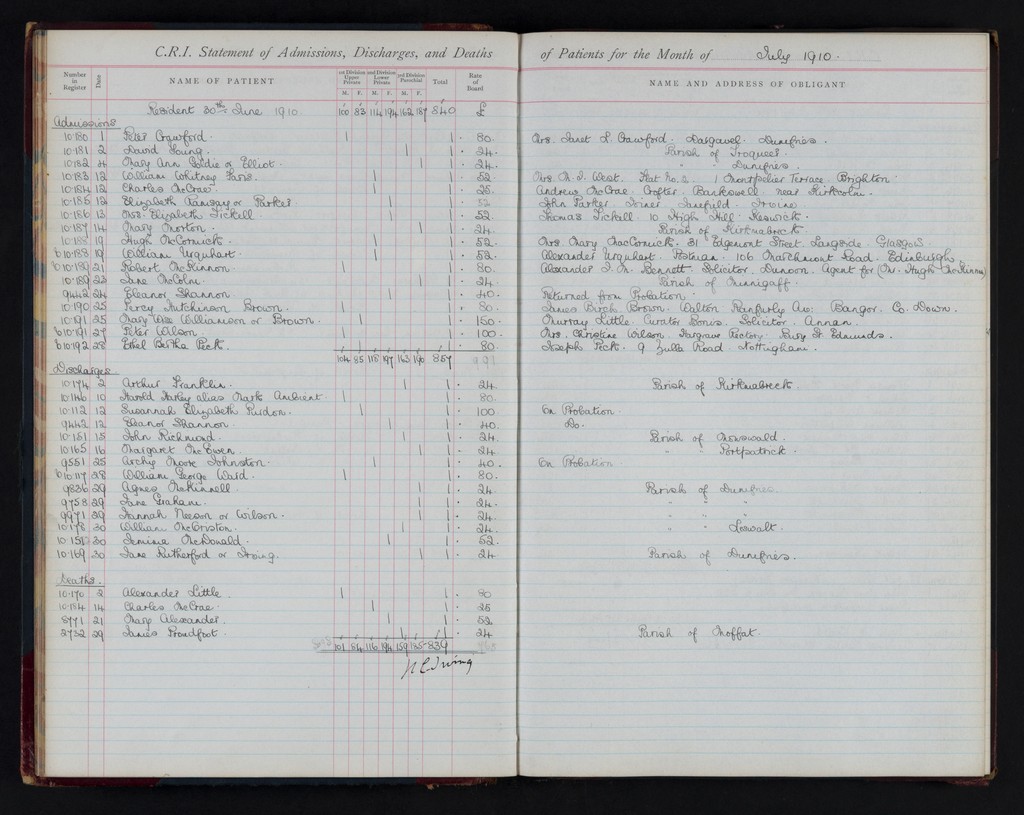 C.R.I. Statement of Admissions, Discharges, and Deaths of Patients for the Month of July 1910.
Number in Register Date NAME OF PATIENT 1st Division Upper Private M. F. 2nd Division Lower Private M. F. 3rd Division Parochial M. F. Total Rate of Board NAME AND ADDRESS OF OBLIGANT
Resident 30th June 1910 100 83 114 194 162 187 840 £
Admissions
10.180 1 Peter Crawford. 1 1 . 80. Mrs. Janet L. Crawford. Dargavel. Dumfries.
10.181 2 David Young. 1 1 . 24. Parish of Troqueer.
10.182 4 Mary Ann Goldie or Elliot. 1 1 . 24. " " Dumfries.
10.183 12 William Whitney Paris. 1 1 . 52. Mrs. M. J. West. Flat No. 2. 1 Montpelier Terrace. Brighton.
10.184 12 Charles McCrae. 1 1 . 25. Andrew McCrae. Crofter. Barkswell. near Kirkcolm.
10.185 12 Elizabeth Ramsay or Parker. 1 1 . 52 John Parker Joiner Janefield. Irvine
10.186 13 Elizabeth Tickell. 1 1 . 52. Thomas Tickell. 10 High Hill. Keswick.
10.187 14 Mary Morton. 1 1 . 24 Parish of Kirkmabreck.
10.188 19 Hugh McCormick. 1 1 . 52. Mrs. Mary MacCormick. 31 Edgemont Street. Langside. Glasgow.
b10.188 19 William Urquhart. 1 1 . 52. Alexander Urquhart. Postman. 106 Marchmont Road. Edinburgh.
b10.189 21 Robert McKinnon. 1 1 . 80. Alexander J. M. Bennett. Solicitor. Dunoon. Agent for (Mr. Hugh McKinnon)
10.189 23 Jane McColm. 1 1 . 24 Parish of Minnigaff.
9442 24 Eleanor Shannon 1 1 . 40. Returned from Probation.
10.190 25 Percy Hutchinson Brown. 1 1 . 80. James Birch Brown. Walton Ranfurly Av: Bangor. Co. Down.
10.191 25 Mary Wise Williamson or Brown. 1 1 . 150. Murray Little. Curator Bonis. Solicitor. Annan.
b10.191 27 Peter Wilson. 1 1 . 100. Mrs. Christine Wilson. Hargrave Rectory. Bury St Edmunds.
b10.192 28 Ethel Bertha Peck. 1 1 . 80 Joseph Peck. 9 Zulla Road. Nottingham.
104 85 118 197 163 190 857
Discharges
10.174 2 Arthur Franklin. 1 1 . 24. Parish of Kirkmabreck.
10.146 10 Harold Harley alias Mark Ambient. 1 1 . 80.
10.112 12 Susannah Elizabeth Purdon. 1 1 . 100 On Probation.
9442 12 Eleanor Shannon. 1 1 . 40. Do.
10.151 15 John Richmond. 1 1 . 24. Parish of Mouswald.
10.165 16 Margaret McEwen. 1 1 . 24 " " Portpatrick.
9551 25 Archy Moore Johnston. 1 1 . 40. On Probation
b10.117 28 William George Ward. 1 1 . 80.
9836 29 Agnes McKinnell. 1 1 . 24. Parish of Dumfries.
9758 29 Jane Graham. 1 1 . 24. " " "
9971 29 Hannah Neeson or Wilson. 1 1 . 24. " " "
10.178 30 William McCriston. 1 1 . 24. " " Leswalt.
10.151 30 Jemima McDonald. 1 1 . 52.
10.169 30 Jane Rutherford or Irving. 1 1 . 24 Parish of Dumfries.
Deaths.
10.170 2 Alexander Little. 1 1 . 80
10.184 14 Charles McCrae. 1 1 . 25
8771 21 Mary Alexander. 1 1 . 52.
2732 29 James Proudfoot. 1 1 . 24 Parish of Moffat.
101 84 116 194 159 185 839